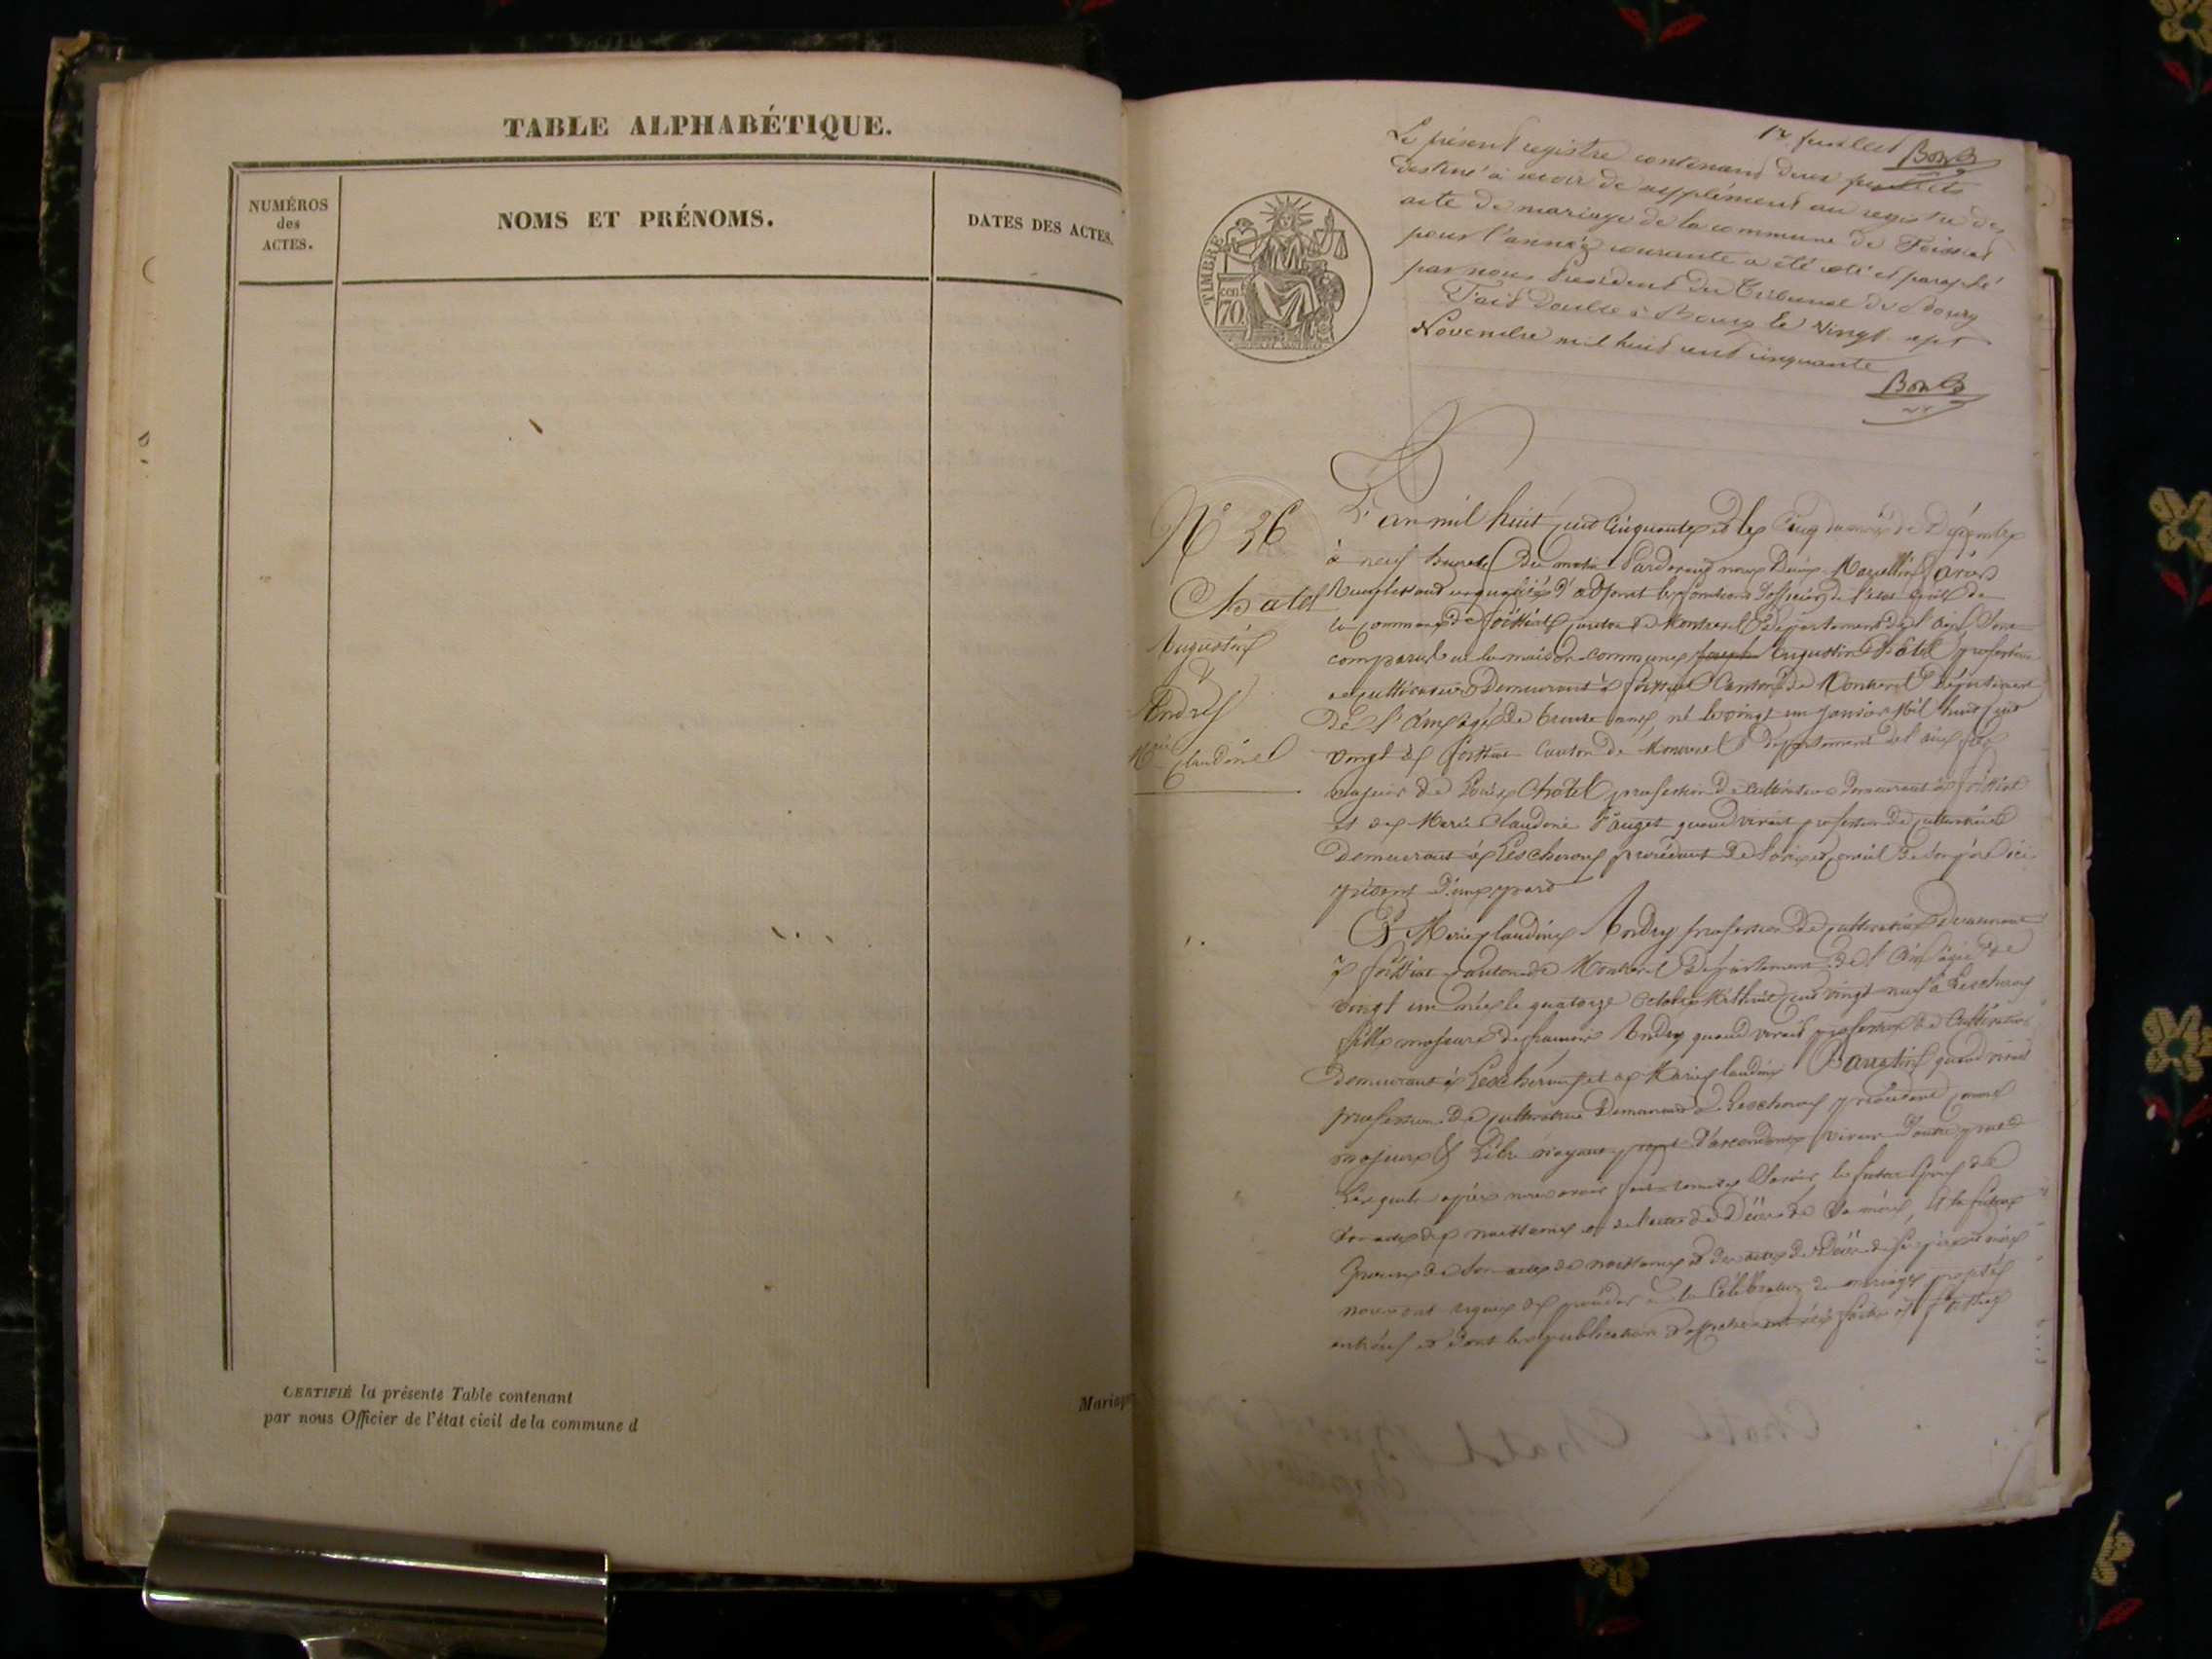 TABLE ALPHABÉTIQUE.
NUMÉROS
des
ACTES.
NOMS ET PRÉNOMS.
DATES DES ACTES.
CERTIFIÉ la présente Table contenant
par nous Officier de l'état civil de la commune d
Mariages
1er feuillet
Le présent registre contenant deux feuillets
destiné à servir de supplément au registre des
acte de mariage de la commune de Foissiat
pour l'année courante a été coté et paraphé
par nous Président du Tribunal de Bourg
Fait double à Bourg le vingt sept
Novembre mil huit cent cinquante
TIMBRE
cent
70
N° 36
Chatel
Augustin
&
Andrey
Mie Claudine
L'an mil huit cent cinquante et le cinq du mois de Décembre
à neuf heures du matin Pardevant nous
Remplissant en qualité d'adjoint les fonctions d'officier de l'état civil de
la commune de Foissiat canton de Montrevel Département de l'ain sont
comparus en la maison commune Joseph Augustin Châtel profession
de cultivateur Demeurant à Foissiat Canton de Montrevel Département
De l'Ain âgé de trente ans, né le vingt un janvier Mil huit cent
vingt à Foissiat Canton de Montrevel Département de l'ain fils
majeur de Louis Châtel profession de cultivateur demeurant à Foissiat
et de Marie Claudine quand vivait profession de cultivatrice
Demeurant à Lescheroux procédant de l'avis et conseil de son père ici
présent D'une part
Et Marie Claudine Andrey profession de cultivatrice demeurant
à Foissiat canton de Montrevel Département de l'Ain âgée de
vingt un née le quatorze Octobre Mil huit cent vingt neuf à Lescheroux
fille majeure de Andrey quand vivait profession de Cultivateur
demeurant à Lescheroux et de Marie Claudine quand vivait
profession de cultivatrice Demeurant à Lescheroux procédant comme
majeure & Libre n'ayant point d'ascendants vivant D'autre part
Lesquels après nous avoir fait remettre Savoir le futur Epoux de
son acte de naissance et de l'acte de Décès de Sa mère, et la future
Epouse de Son acte de naissance et des actes de Décès de ses père et mère
nous ont requis de procéder à la Célébration du mariage projeté
entr'eux et dont les publications